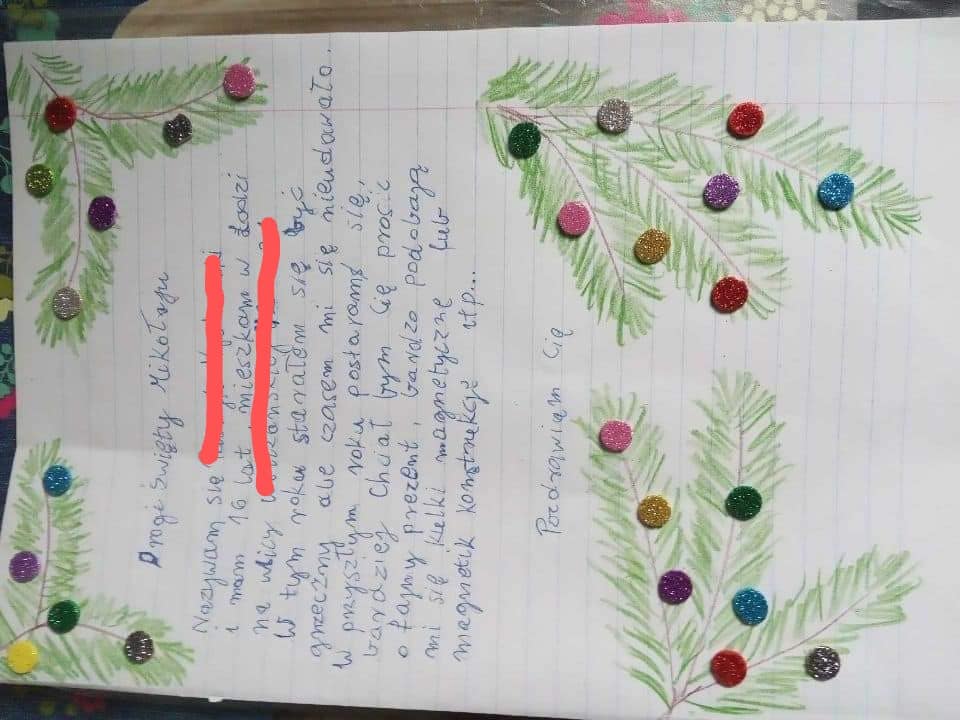 Drogi Święty Mikołaju
Nazywam się
i mam 16 lat mieszkam w Łodzi
na ulicy
W tym roku starałem się być
grzeczny ale czasem mi się nieudawało.
W przyszłym roku postaramś się,
bardziej Chciał bym Cię prosić
o fajny prezent, bardzo podobają
mi się kulki magnetyczne lub
magnetik konstrukcje itp...
Pozdrawiam Cię